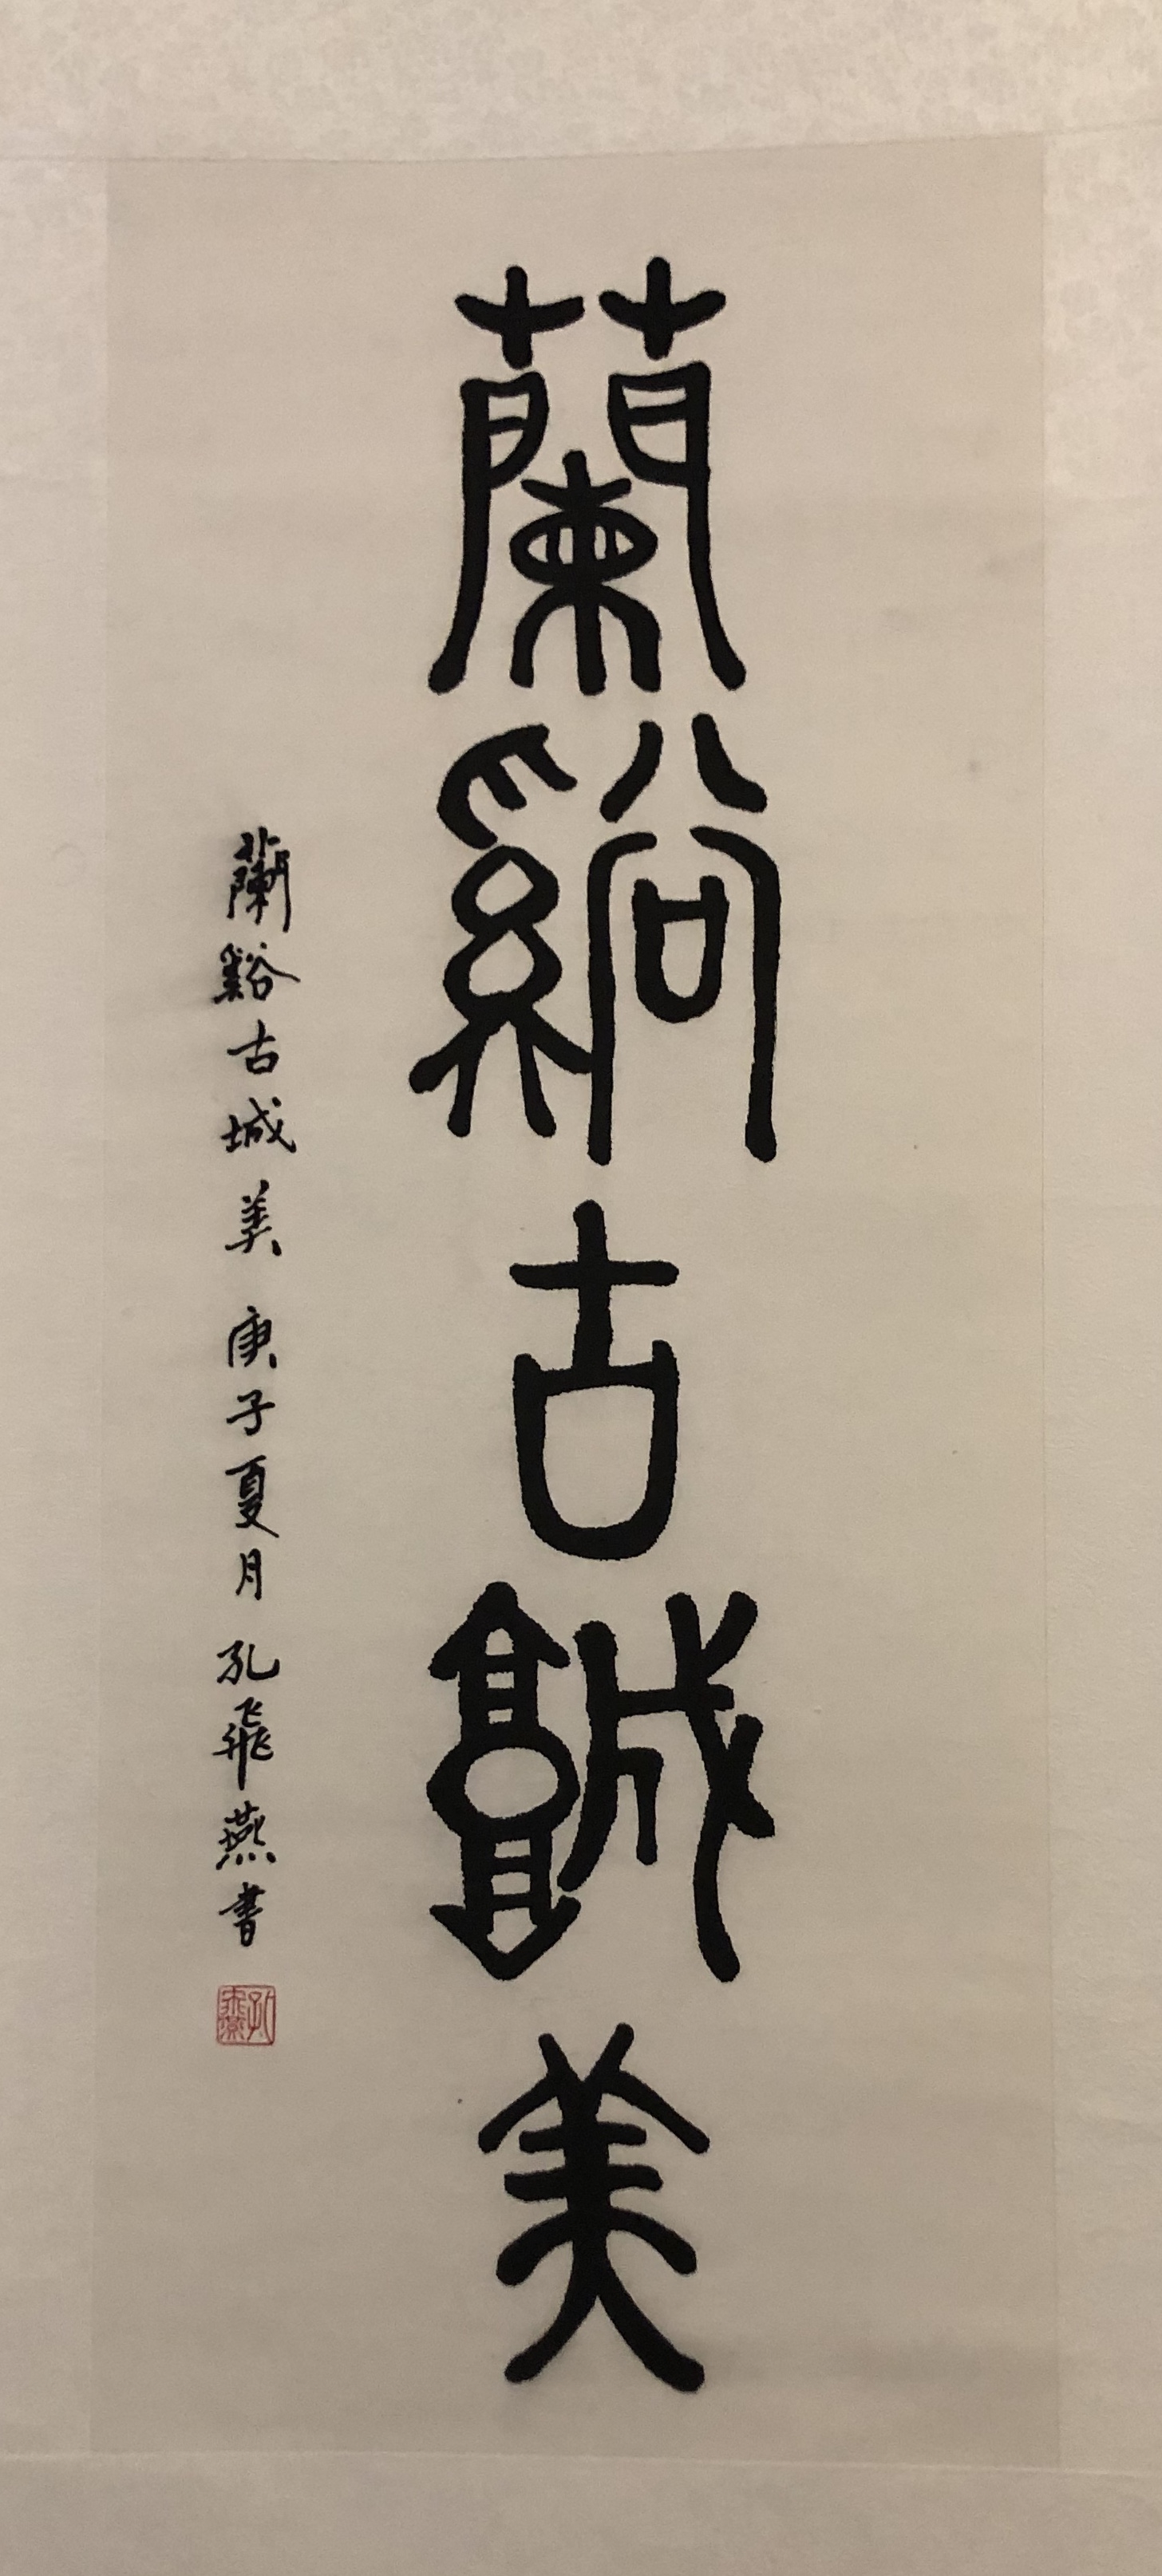 蘭谿古城美
蘭谿古城美 庚子夏月 孔飛燕書